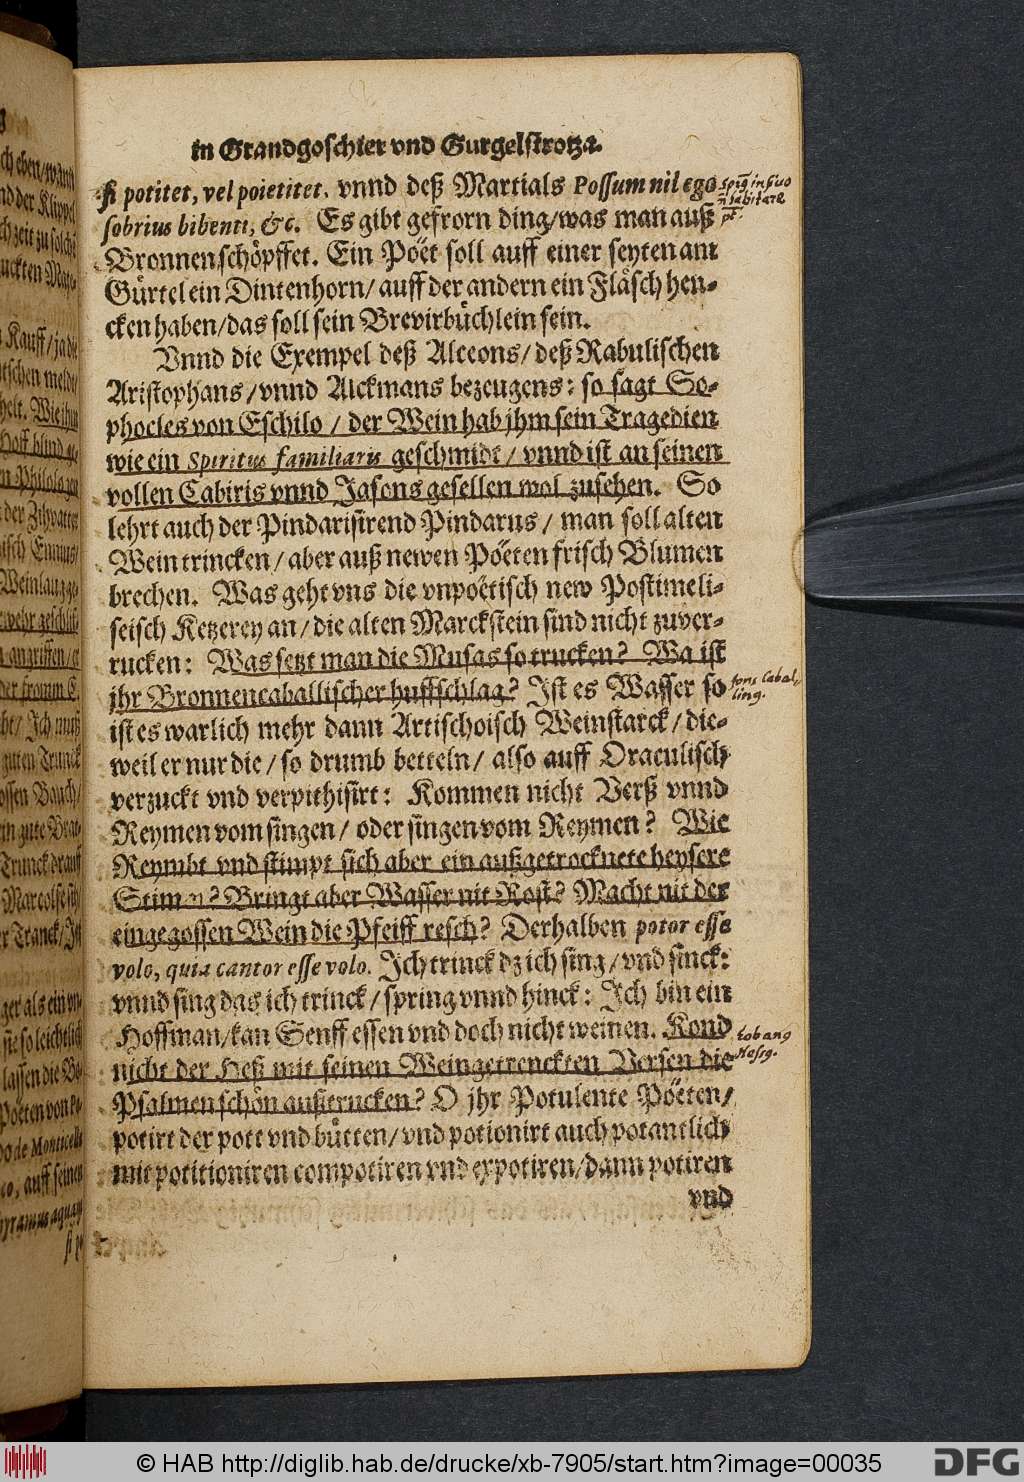 in Grandgoschier vnd Gurgelstrotza.
si potitet, vel poietitet. vnnd deß Martials Possum nil ego
sobrius bibenti, &c. Es gibt gefrorn ding/was man auß
Bronnen schöpffet. Ein Poët soll auff einer seyten am
Gürtel ein Dintenhorn/ auff der andern ein Fläsch hen-
cken haben/das soll sein Brevirbüchlein sein.
Vnnd die Exempel deß Alceons/deß Rabulischen
Aristophans/vnnd Alckmans bezeugens: so sagt So-
phocles von Eschilo/ der Wein hab jhm sein Tragedien
wie ein Spiritus familiaris geschmidt/ vnnd ist an seinen
vollen Cabiris vnnd Jasons gesellen wol zusehen. So
lehrt auch der Pindarisirend Pindarus/ man soll alten
Wein trincken/ aber auß newen Poëten frisch Blumen
brechen. Was geht vns die vnpoëtisch new Postimeli-
seisch Ketzerey an/ die alten Marckstein sind nicht zuver-
rucken: Was setzt man die Musas so trucken? Wa ist
jhr Bronnencaballischer huffschlag? Ist es Wasser so
fons Cabal-
ling.
ist es warlich mehr dann Artischoisch Weinstarck/ die-
weil er nur die/ so drumb betteln/ also auff Oraculisch
verzuckt vnd verpithisirt: Kommen nicht Verß vnnd
Reymen vom singen/ oder singen vom Reymen? Wie
Reymbt vnd stimpt sich aber ein außgetrocknete heysere
Stimm? Bringt aber Wasser nit Rost? Macht nit der
eingegossen Wein die Pfeiff resch? Derhalben potor esse
volo, quia cantor esse volo. Ich trinck dz ich sing/ vnd sinck:
vnnd sing das ich trinck/ spring vnnd hinck: Ich bin ein
Hoffman/kan Senff essen vnd doch nicht weinen. Kond
nicht der Heß mit seinen Weingetrenckten Versen die
Psalmen schön außtrucken? O jhr Potulente Poëten/
potirt der pott vnd bütten/ vnd potionirt auch potantlich
mit potitioniren compotiren vnd expotiren/dann potiren
vnd
© HAB http://diglib.hab.de/drucke/xb-7905/start.htm?image=00035
DFG